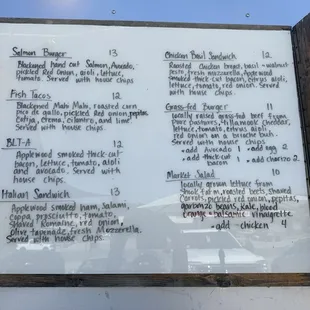 Salmon Burger 13
Blackened hand cut Salmon, Avocado,
pickled Red onion, aioli, lettuce,
tomato. Served with house chips.
Fish Tacos 12
Blackened Mahi Mahi, roasted corn
pico de gallo, pickled red onion, pepitas
cotija, crema, cilantro, and lime
Served with house chips.
BLT-A 12
Applewood smoked thick-cut
bacon, lettuce, tomato, aioli
and avocado. Served with
house chips.
Italian Sandwich 13
Applewood smoked ham, salami,
coppa, prosciutto, tomato,
shaved Romaine, red onion,
olive tapenade, fresh Mozzerella.
Served with house chips.
Chicken Bowl Sandwich 12
Roasted chicken breast, basil-walnut
pesto, fresh mozzarella, Applewood
smoked thick cut bacon, citrus aioli,
lettuce, tomato, red onion. Served
with house chips.
Grass-fed Burger 11
locally raised grass-fed beef from
pastures, cheddar,
lettuce, tomato, citrus aioli
red onion on a brioche bun.
Served with house chips
- add Avocado 1 - add egg 2
- add thick-cut bacon 1 - add chorizo 2
Market Salad 10
locally grown lettuce from
roasted beets, shaved
Carrots, pickled red onion, pepitas,
garbanzo beans, kale, blood
orange + balsamic vinaigrette
- add chicken 4